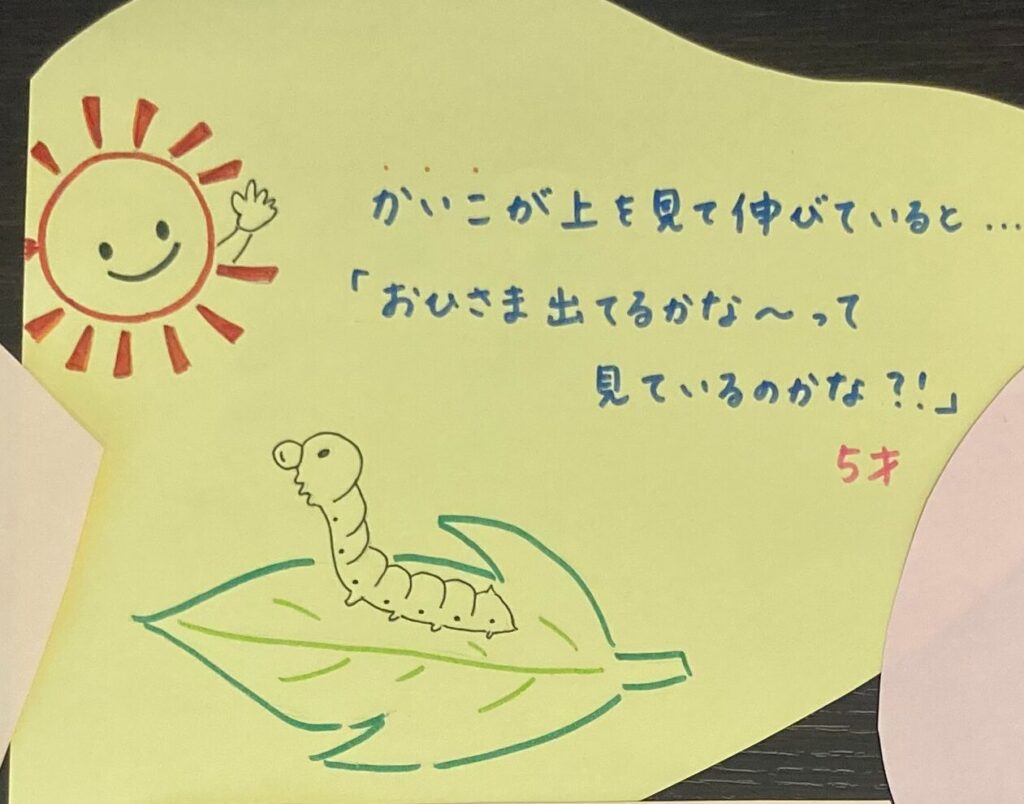 かいこが上を見て伸びていると…
「おひさま出てるかな～って
見ているのかな?!」
5才